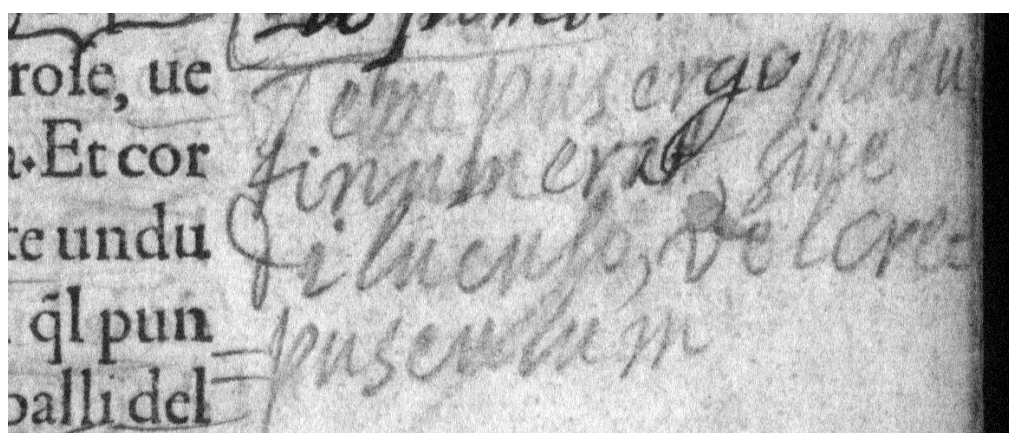 role, ue
a. Et cor
te undu
q̃l pun
balli del
Tempus ergo matu
tinum erat, sive
diluculo, vel cre=
pusculum